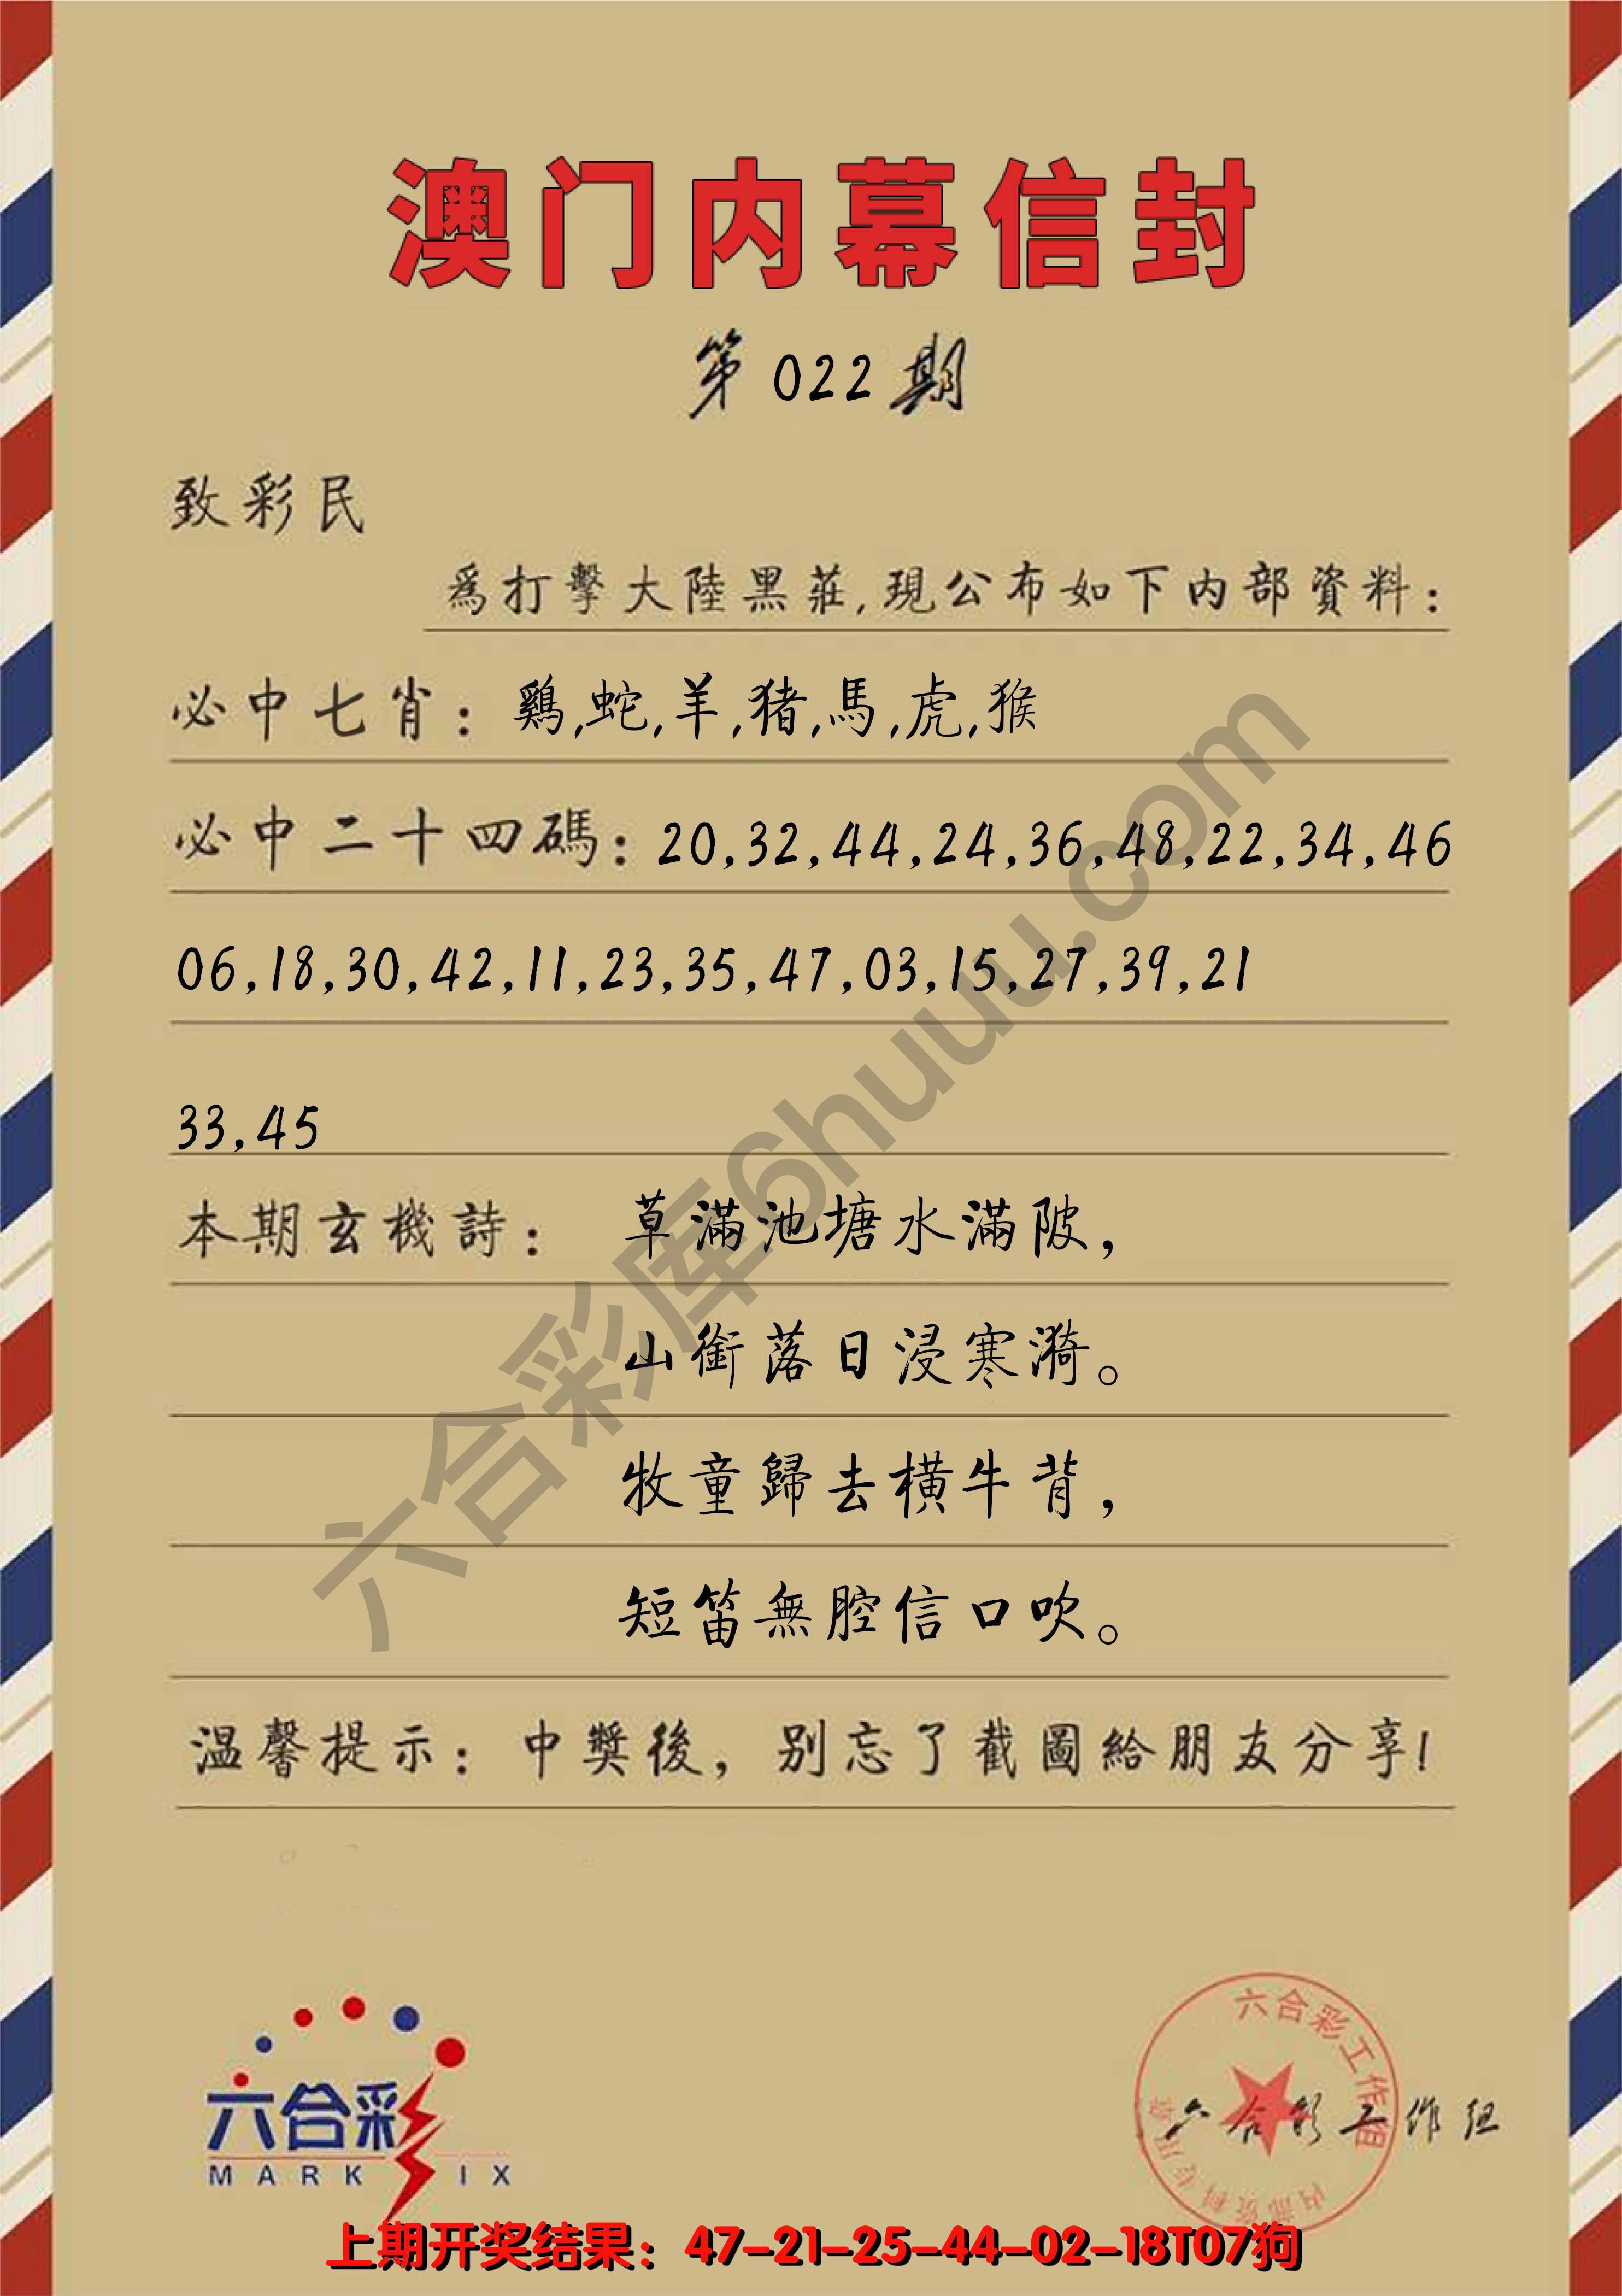 澳门内幕信封
第022期
致彩民
爲打擊大陸黑莊,現公布如下内部資料:
必中七肖: 鷄,蛇,羊,猪,馬,虎,猴
必中二十四碼: 20,32,44,24,36,48,22,34,46
06,18,30,42,11,23,35,47,03,15,27,39,21
33,45
本期玄機詩: 草滿池塘水滿陂,
山銜落日浸寒漪。
牧童歸去横牛背,
短笛無腔信口吹。
温馨提示: 中獎後, 别忘了截圖給朋友分享!
六合彩库6huuu.com
六合彩
MARK IX
六合彩工作组
内部资料专用章
六合彩工作组
上期开奖结果: 47-21-25-44-02-18T07狗